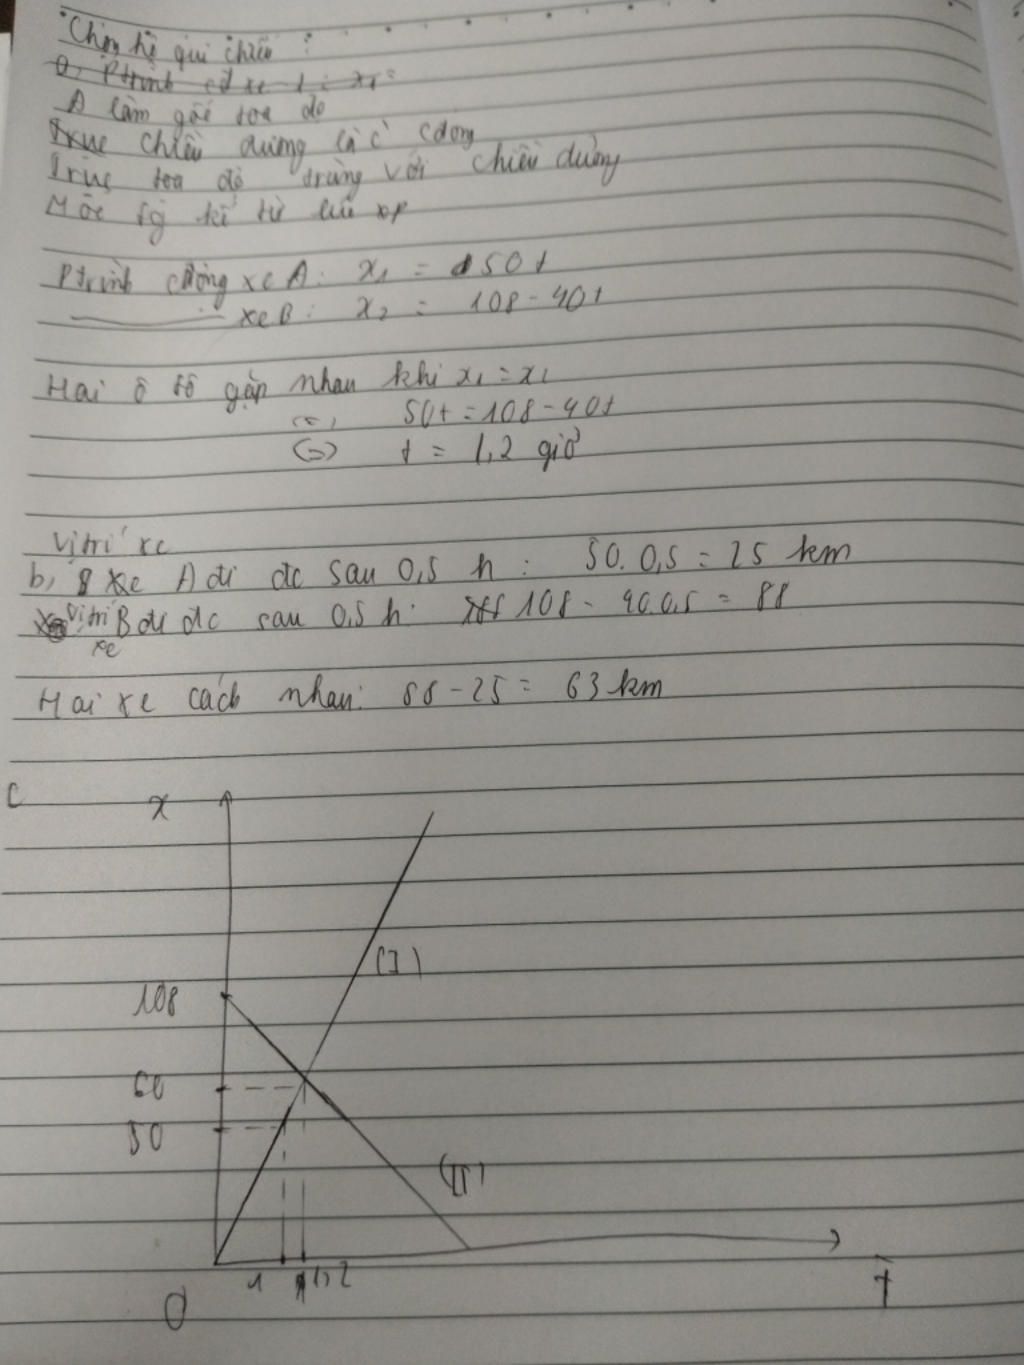 Chọn hệ qui chiếu :
a, Ptrình cđ xe 1 : x₁ =
A làm gốc toạ độ
Trục chiều dương là c² cđộng
Trục toạ độ trùng với chiều dương
Mốc tg kể từ lúc xp
Ptrình cđộng xe A : x₁ = 50t
xe B : x₂ = 108 - 40t
Hai ô tô gặp nhau khi x₁ = x₂
(=) 50t = 108 - 40t
(=) t = 1,2 giờ
Vị trí xe
b, A đi đc sau 0,5 h : 50. 0,5 = 25 km
Vị trí B đi đc sau 0,5 h : 108 - 40.0,5 = 88
xe
Hai xe cách nhau: 88 - 25 = 63 km
c
x
(I)
108
60
50
(II)
1 1,2
t
O